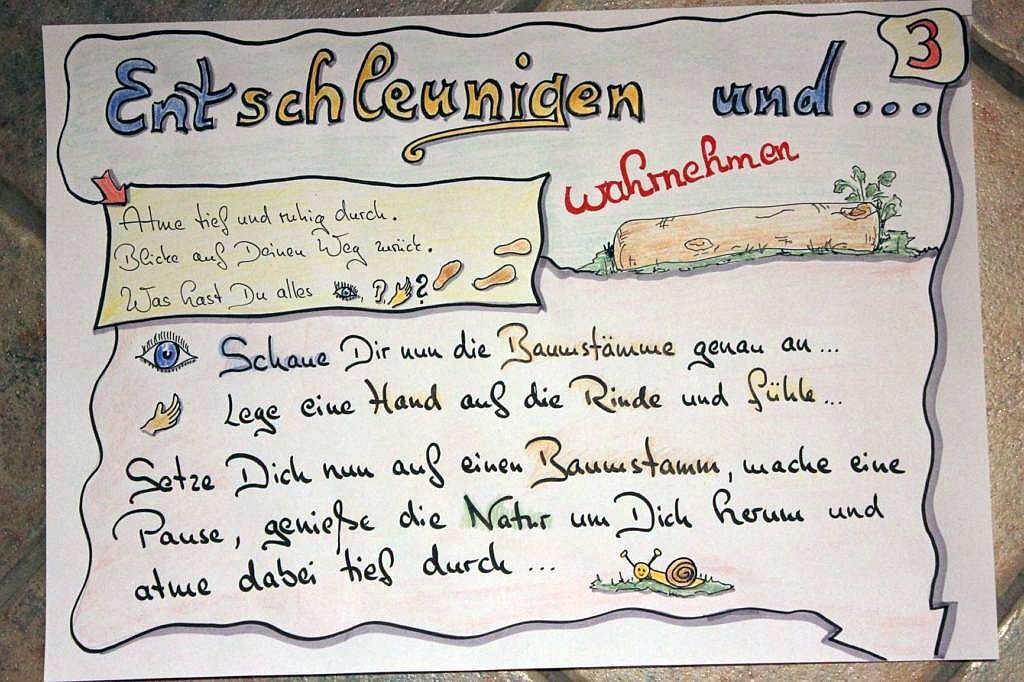 3
Entschleunigen und...
wahrnehmen
Atme tief und ruhig durch.
Blicke auf Deinen Weg zurück.
Was hast Du alles , ?
Schaue Dir nun die Baumstämme genau an...
Lege eine Hand auf die Rinde und fühle...
Setze Dich nun auf einen Baumstamm, mache eine
Pause, genieße die Natur um Dich herum und
atme dabei tief durch...